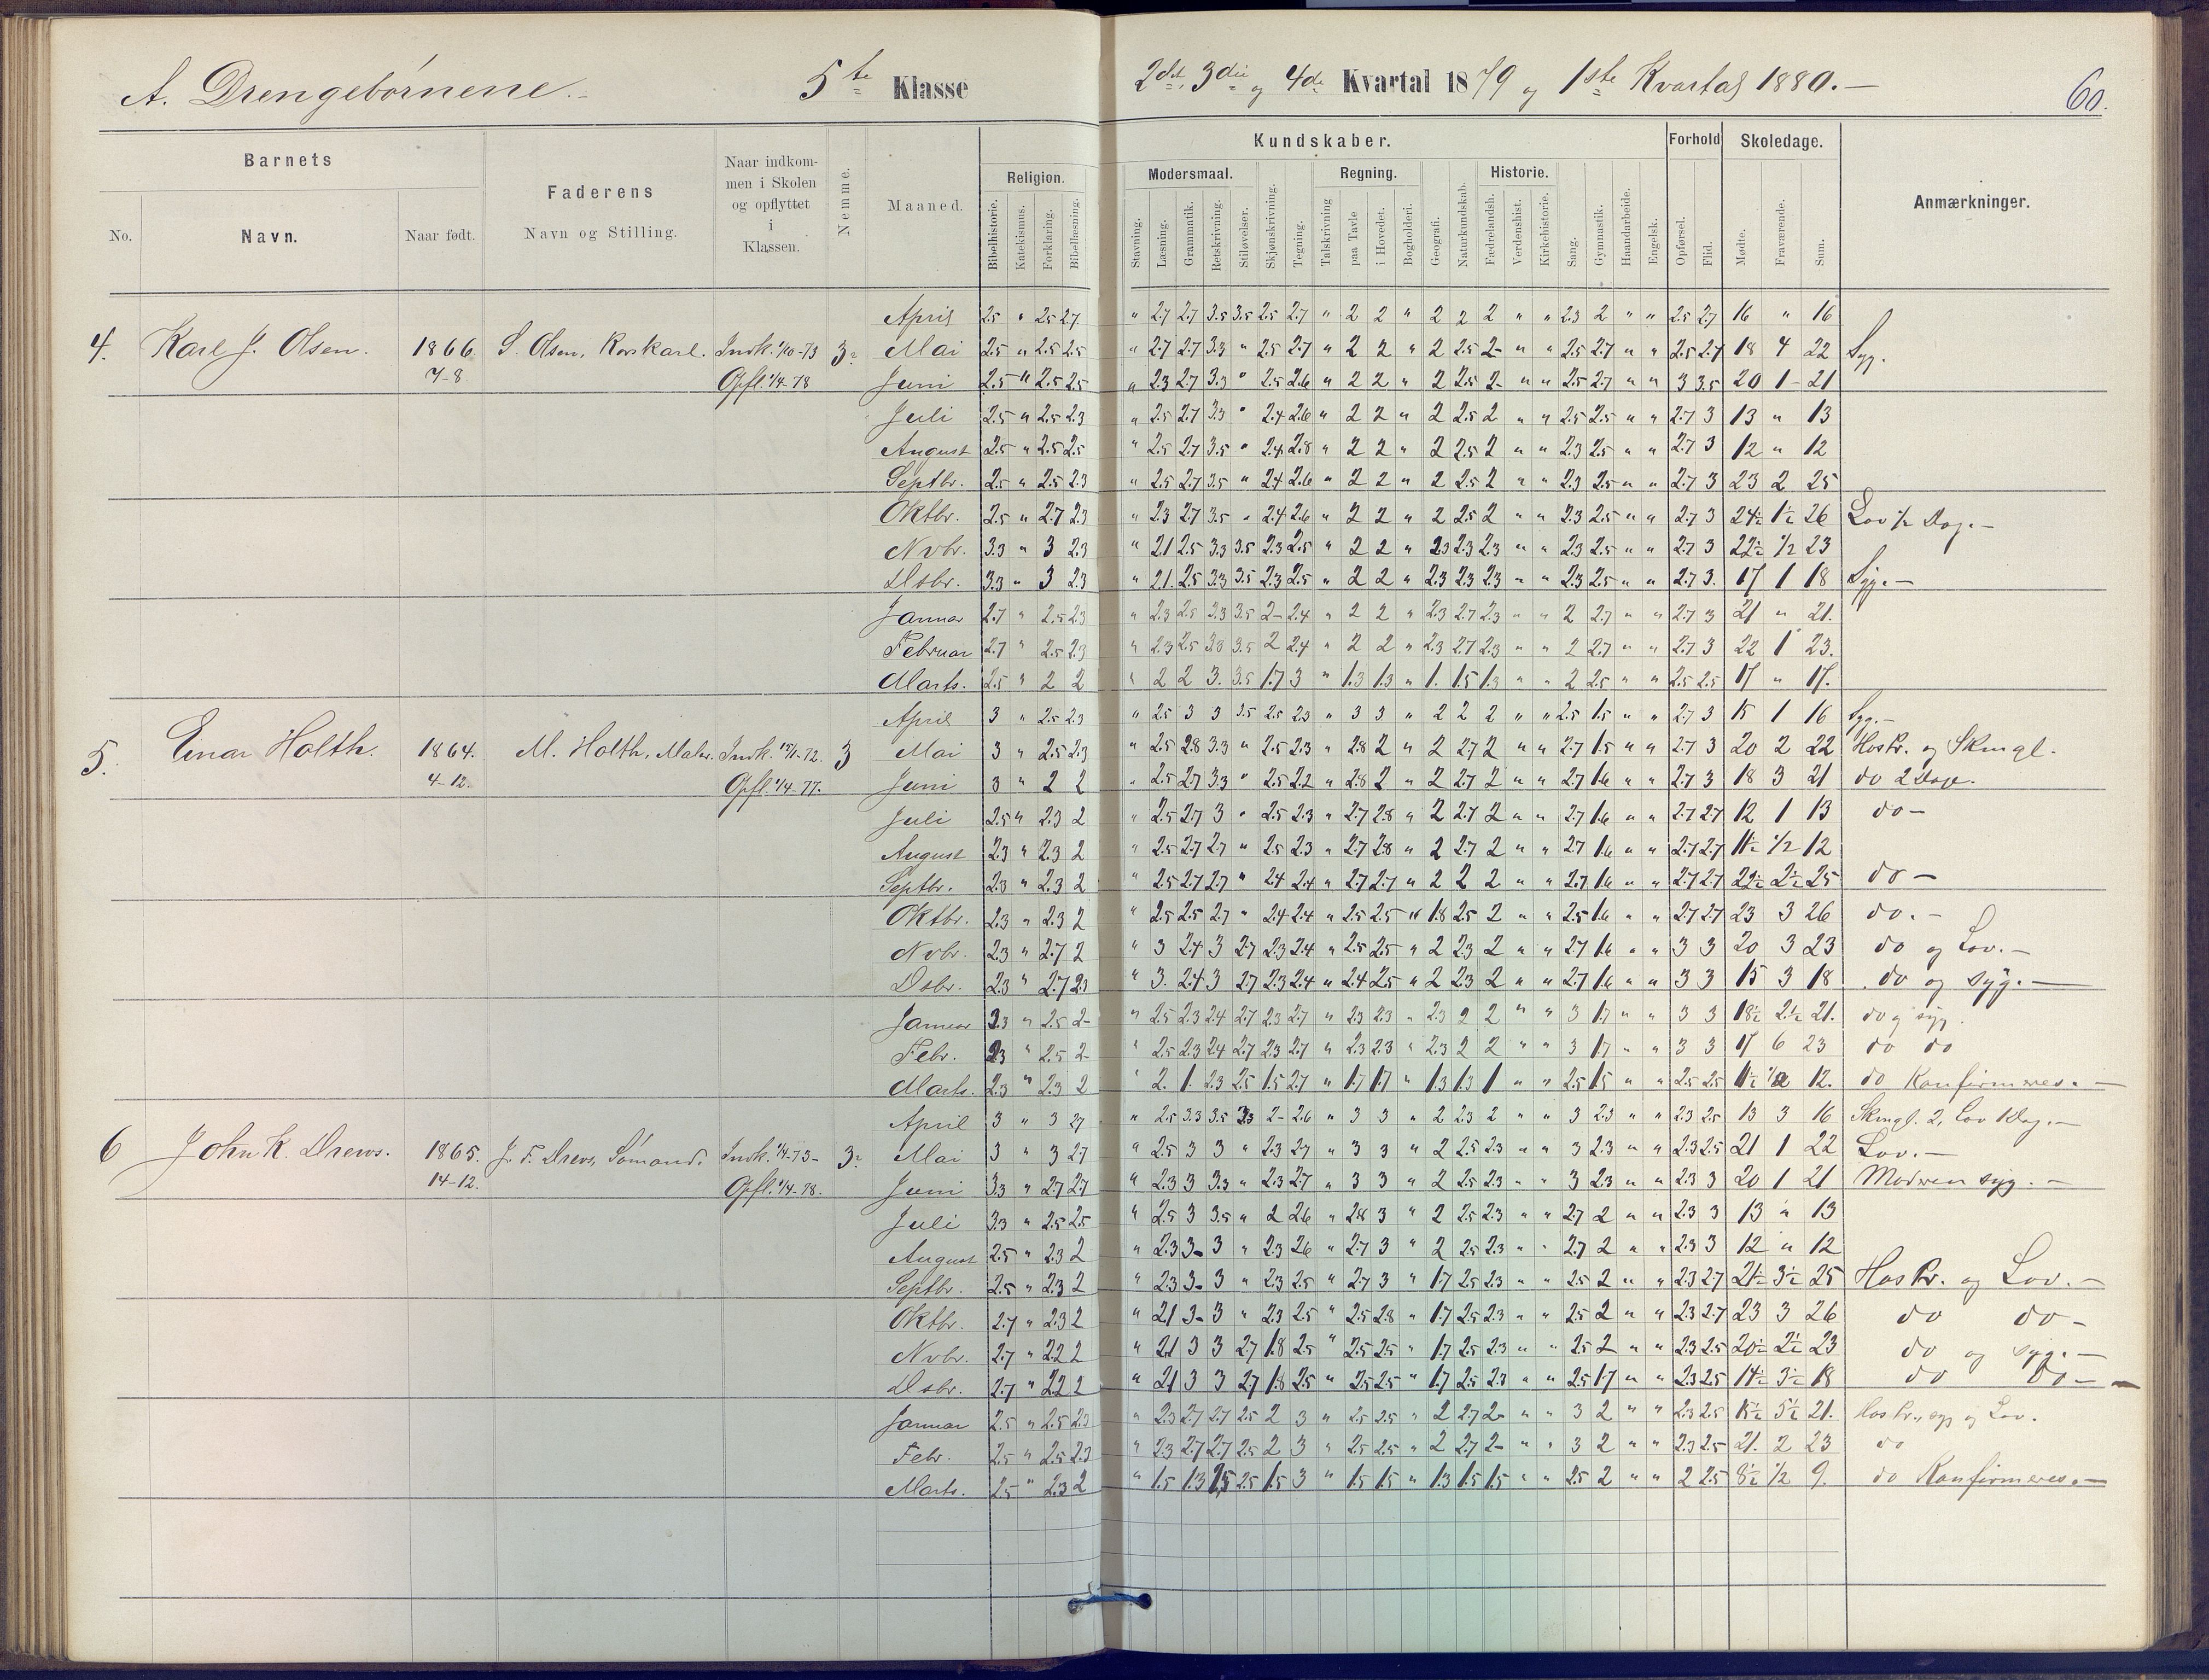 A. Drengebørnene.- 5te Klasse 2det, 3die og 4de Kvartal 1879 og 1ste Kvartal 1880.- 60.
Barnets
Faderens
Navn og Stilling.
Naar indkom-
men i Skolen
og opflyttet
i
Klassen.
Nemme.
Maaned.
Kundskaber.
Forhold
Skoledage.
Anmærkninger.
No.
Navn.
Naar født.
Religion.
Modersmaal.
Regning.
Historie.
Bibelhistorie. Katekismus. Forklaring. Bibellæsning. Stavning. Læsning. Grammatik. Retskrivning. Stiløvelser. Skjønskrivning. Tegning. Talskrivning paa Tavle i Hovedet. Bogholderi. Geografi. Naturkundskab. Fædrelandsh. Verdenshist. Kirkehistorie. Sang. Gymnastik. Haandarbeide. Engelsk. Opførsel. Flid. Mødte. Fraværende. Sum.
April 2.5 " 2.5 2.7 " 2.7 2.7 3.5 3.5 2.5 2.7 " 2 2 " 2 2 2 " " 2.3 2 " " 2.5 2.7 16 " 16
4. Karl J. Olsen. 1866. S. Olsen, Rorskarl. Indk. 1/10-73 3- Mai 2.5 " 2.5 2.5 " 2.7 2.7 3.3 " 2.5 2.7 " 2 2 " 2 2.5 2- " " 2.5 2.7 " " 2.5 2.7 18 4 22 Syg.
7-8 Opfl. 1/4-78 Juni 2.5 " 2.5 2.5 " 2.3 2.7 3.3 " 2.5 2.6 " 2 2 " 2 2.5 2- " " 2.5 2.7 " " 3 3.5 20 1- 21
Juli 2.5 " 2.5 2.3 " 2.5 2.7 3.3 " 2.4 2.6 " 2 2 " 2 2.5 2 " " 2.5 2.5 " " 2.7 3 13 " 13
August 2.5 " 2.5 2.5 " 2.5 2.7 3.5 " 2.4 2.8 " 2 2 " 2 2.5 2 " " 2.3 2.5 " " 2.7 3 12 " 12
Septbr. 2.5 " 2.5 2.3 " 2.5 2.7 3.5 " 2.4 2.6 " 2 2 " 2 2.5 2 " " 2.3 2.5 " " 2.7 3 23 2 25
Oktbr. 2.5 " 2.7 2.3 " 2.3 2.7 3.5 " 2.4 2.6 " 2 2 " 2 2.5 2 " " 2.3 2.5 " " 2.7 3 24½ 1½ 26 Lov ½ Dag.-
Nvbr. 3.3 " 3 2.3 " 2.1 2.5 3.3 3.5 2.3 2.5 " 2 2 " 2.3 2.3 2.3 " " 2.3 2.5 " " 2.7 3 22½ ½ 23
Dsbr. 3.3 " 3 2.3 " 2.1. 2.5 3.3 3.5 2.3 2.5 " 2 2 " 2.3 2.3 2.3 " " 2.3 2.5 " " 2.7 3. 17 1 18 Syg.-
Januar 2.7 " 2.5 2.3 " 2.3 2.5 3.3 3.5 2- 2.4 " 2 2 " 2.3 2.7 2.3 " " 2 2.7 " " 2.7 3 21 " 21.
Februar 2.7 " 2.5 2.3 " 2.3 2.5 3.3 3.5 2 2.4 " 2 2 " 2.3 2.7 2.3 " " 2 2.7 " " 2.7 3 22 1 23.
Marts. 2.5 " 2 2 " 2 2 3. 3.5 1.7 3 " 1.3 1.3 " 1. 1.5 1.3 " " 2 2.5 " " 2.5 2.5 17 " 17.
April 3 " 2.5 2.3 " 2.5 3 3 3.5 2.5 2.3 " 3 3 " 2 2 2 " " 2.5 1.5 " " 2.7 3 15 1 16 Syg.-
5. Einar Holth. 1864. M. Holth, Maler. Indk. 13/1-72. 3 Mai 3 " 2.5 2.3 " 2.5 2.8 3.3 " 2.5 2.3 " 2.8 2 " 2 2.7 2 " " 2.7 1.5 " " 2.7 3 20 2 22 Hos Pr. og Skmgl.
4-12. Opfl. 1/4-77. Juni 3 " 2 2 " 2.5 2.7 3.3 " 2.5 2.2 " 2.8 2 " 2 2.7 2 " " 2.7 1.6 " " 2.7 3 18 3 21 do 2 Dage.
Juli 2.5 " 2.3 2 " 2.5 2.7 3 " 2.5 2.3 " 2.7 2.8 " 2 2.7 2 " " 2.7 1.6 " " 2.7 2.7 12 1 13 do-
August 2.3 " 2.3 2 " 2.5 2.7 2.7 " 2.5 2.3 " 2.7 2.8 " 2 2.7 2 " " 2.7 1.6 " " 2.7 2.7 11½ ½ 12
Septbr. 2.3 " 2.3 2 " 2.5 2.7 2.7 " 2.4 2.4 " 2.7 2.7 " 2 2 2 " " 2.7 1.6 " " 2.7 2.7 22½ 2½ 25 do-
Oktbr. 2.3 " 2.3 2 " 2.5 2.5 2.7 " 2.4 2.4 " 2.5 2.5 " 1.8 2.5 2 " " 2.5 1.6 " " 2.7 2.7 23 3 26 do.-
Nvbr. 2.3 " 2.7 2 " 3 2.4 3 2.7 2.3 2.4 " 2.5 2.5 " 2 2.3 2 " " 2.7 1.6 " " 3 3 20 3 23 do og Lov.-
Dsbr. 2.3 " 2.7 2.3 " 3. 2.4 3 2.7 2.3 2.4 " 2.4 2.5 " 2 2.3 2 " " 2.7 1.6 " " 3 3 15 3 18 do og syg.-
Januar 2.3 " 2.5 2- " 2.5 2.3 2.4 2.7 2.3 2.7 " 2.3 2.3 " 2.3 2 2 " " 3 1.7 " " 3 3 18½ 2½ 21. do og syg.
Febr. 2.3 " 2.5 2- " 2.5 2.3 2.4 2.7 2.3 2.7 " 2.3 2.3 " 2.3 2 2 " " 3 1.7 " " 3 3 17 6 23 do do
Marts. 2.3 " 2.3 2 " 2. 1. 2.3 2.5 1.5 2.7 " 1.7 1.7 " 1.3 1.3 1 " " 2.5 1.5 " " 2.5 2.5 11½ ½ 12. do Konfirmeres.-
April 3 " 3 2.7 " 2.5 3.3 3.5 3.3 2- 2.6 " 3 3 " 2 2.3 2 " " 3 2.3 " " 2.3 2.5 13 3 16 Skmgl. 2, Lov 1 Dag.-
6 John K. Drews. 1865. J. F. Drews, Sømand. Indk. 1/4-73- 3- Mai 3 " 3 2.7 " 2.5 3 3 " 2.3 2.7 " 3 3 " 2 2.5 2.3 " " 3 2.3 " " 2.3 2.5 21 1 22 Lov.-
14-12. Opfl. 1/4-78. Juni 3.3 " 2.7 2.7 " 2.3 3 3.3 " 2.3 2.7 " 3 3 " 2 2.5 2.3 " " 3 2.3 " " 2.3 3 20 1 21 Modren syg.-
Juli 3.3 " 2.5 2.5 " 2.5 3 3.5 " 2 2.6 " 2.8 3 " 2 2.5 2.3 " " 2.7 2 " " 2.3 3 13 " 13
August 2.5 " 2.3 2 " 2.3 3- 3 " 2.3 2.6 " 2.7 3 " 2 2.5 2.3 " " 2.7 2 " " 2.3 3 12 " 12
Septbr. 2.5 " 2.3 2 " 2.3 3- 3 " 2.3 2.5 " 2.7 3 " 1.7 2.5 2.3 " " 2.5 2 " " 2.3 2.7 21½ 3½ 25 Hos Pr. og Lov.-
Oktbr. 2.7 " 2.3 2 " 2.1 3- 3 " 2.3 2.5 " 2.5 2.8 " 1.7 2.5 2.3 " " 2.5 2 " " 2.3 2.7 23 3 26 do do-
Nvbr. 2.7 " 2.2 2 " 2.1 3 3 2.7 1.8 2.5 " 2.5 2.5 " 1.7 2.5 2.3 " " 2.5 2 " " 2.3 2.5 20½ 2½ 23 do og syg.-
Dsbr. 2.7 " 2.2 2 " 2.1 3 3 2.7 1.8 2.5 " 2.5 2.5 " 1.7 2.5 2.3 " " 2.5 1.7 " " 2.3 2.5 14½ 3½ 18 do do-
Januar 2.5 " 2.5 2.3 " 2.3 2.7 2.7 2.5 2 3 " 2.5 2.5 " 2 2.7 2- " " 3 2 " " 2.3 2.5 15½ 5½ 21. Hos Pr., syg og Lov.
Febr. 2.5 " 2.5 2.3 " 2.3 2.7 2.7 2.5 2 3 " 2.5 2.5 " 2 2.7 2- " " 3 2 " " 2.3 2.5 21. 2 23 do
Marts. 2.5 " 2.3 2 " 1.5 1.3 2.5 2.5 1.5 3 " 1.5 1.5 " 1.3 1.5 1.5 " " 2.5 2 " " 2 2.5 8½ ½ 9. do Konfirmeres.-